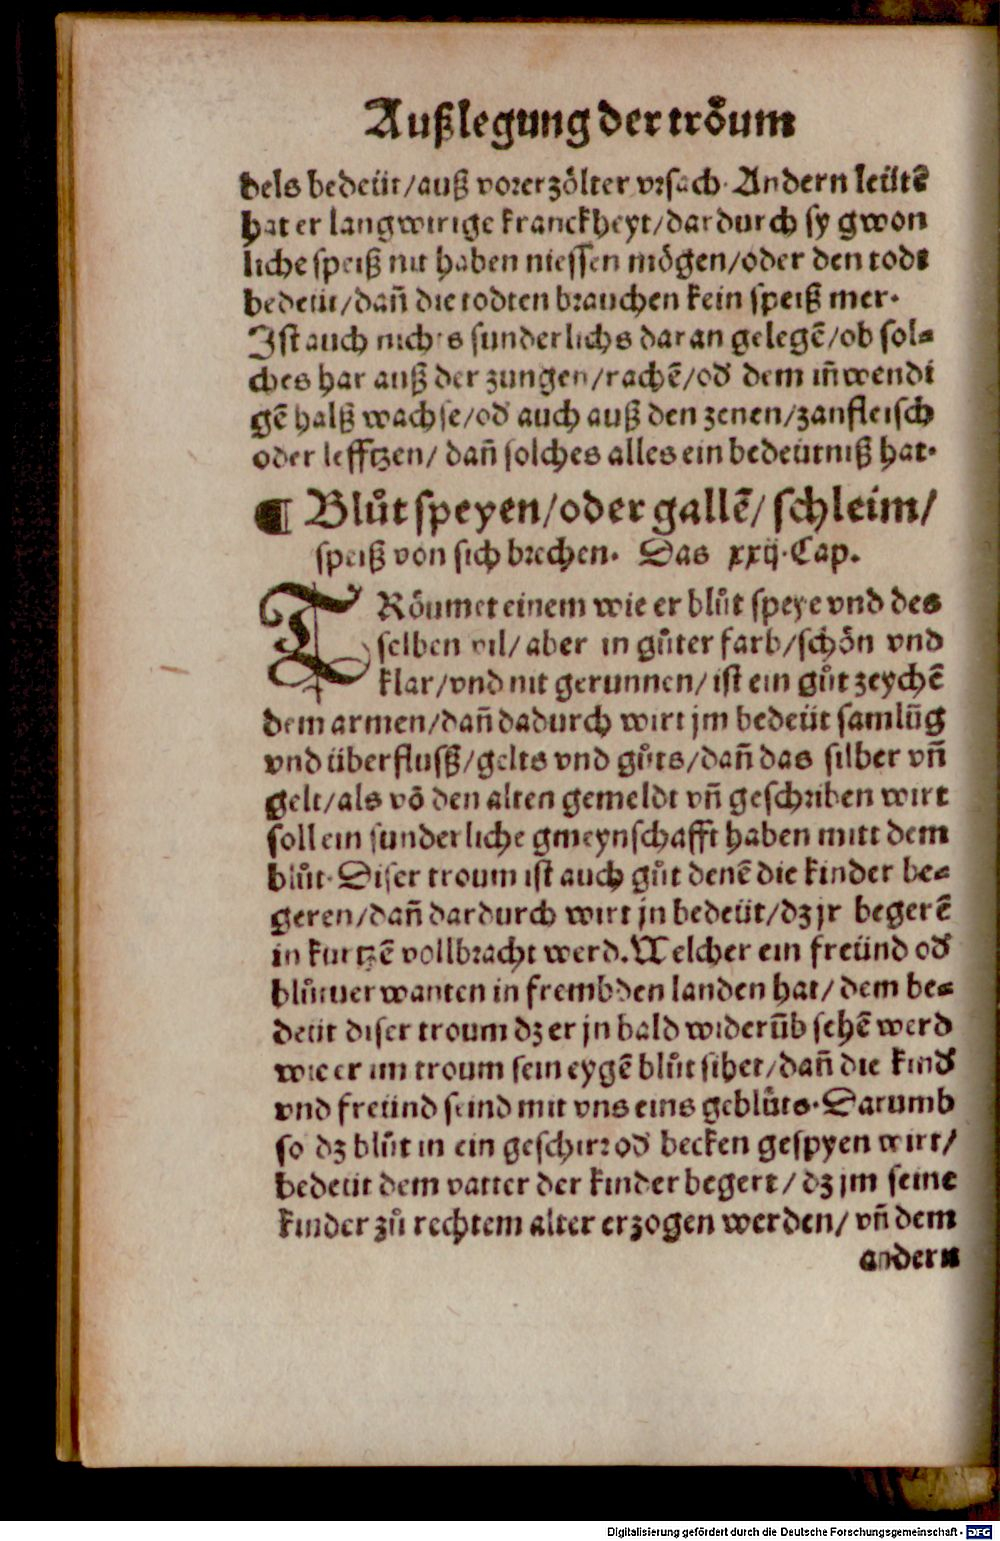 Außlegung der troͤum
dels bedeüt/auß vorerzoͤlter vrsach. Andern leütẽ
hat er langwirige kranckheyt/dardurch sy gwon
liche speiß nit haben niessen moͤgen/oder den todt
bedeüt/dañ die todten brauchen kein speiß mer.
Ist auch nichts sunderlichs daran gelegẽ/ob sol⸗
ches har auß der zungen/rachẽ/od dem iñwendi
gẽ halß wachse/od auch auß den zenen/zanfleisch
oder lefftzen/ dañ solches alles ein bedeütniß hat.
¶ Bluͦt speyen/oder gallẽ/ schleim/
speiß von sich brechen. Das xxij. Cap.
TRoͤumet einem wie er bluͦt speye vnd des
selben vil/ aber in guͦter farb/schoͤn vnd
klar/vnd nit gerunnen/ ist ein guͦt zeychẽ
dem armen/dañ dadurch wirt jm bedeüt samlũg
vnd überfluß/gelts vnd guͦts/dañ das silber vñ
gelt/als võ den alten gemeldt vñ geschriben wirt
soll ein sunderliche gmeynschafft haben mitt dem
bluͦt. Diser troum ist auch guͦt denẽ die kinder be⸗
geren/dañ dardurch wirt jn bedeüt/dz jr begerẽ
in kurtzẽ vollbracht werd. Welcher ein freünd od
bluͦtuerwanten in frembden landen hat/ dem be⸗
deüt diser troum dz er jn bald widerũb sehẽ werd
wie er im troum sein eygẽ bluͦt sihet/dañ die kind
vnd freünd seind mit vns eins gebluͤts. Darumb
so dz bluͦt in ein geschirr od becken gespyen wirt/
bedeüt dem vatter der kinder begert/ dz jm seine
kinder zuͦ rechtem alter erzogen werden/ vñ dem
andern
Digitalisierung gefördert durch die Deutsche Forschungsgemeinschaft - DFG